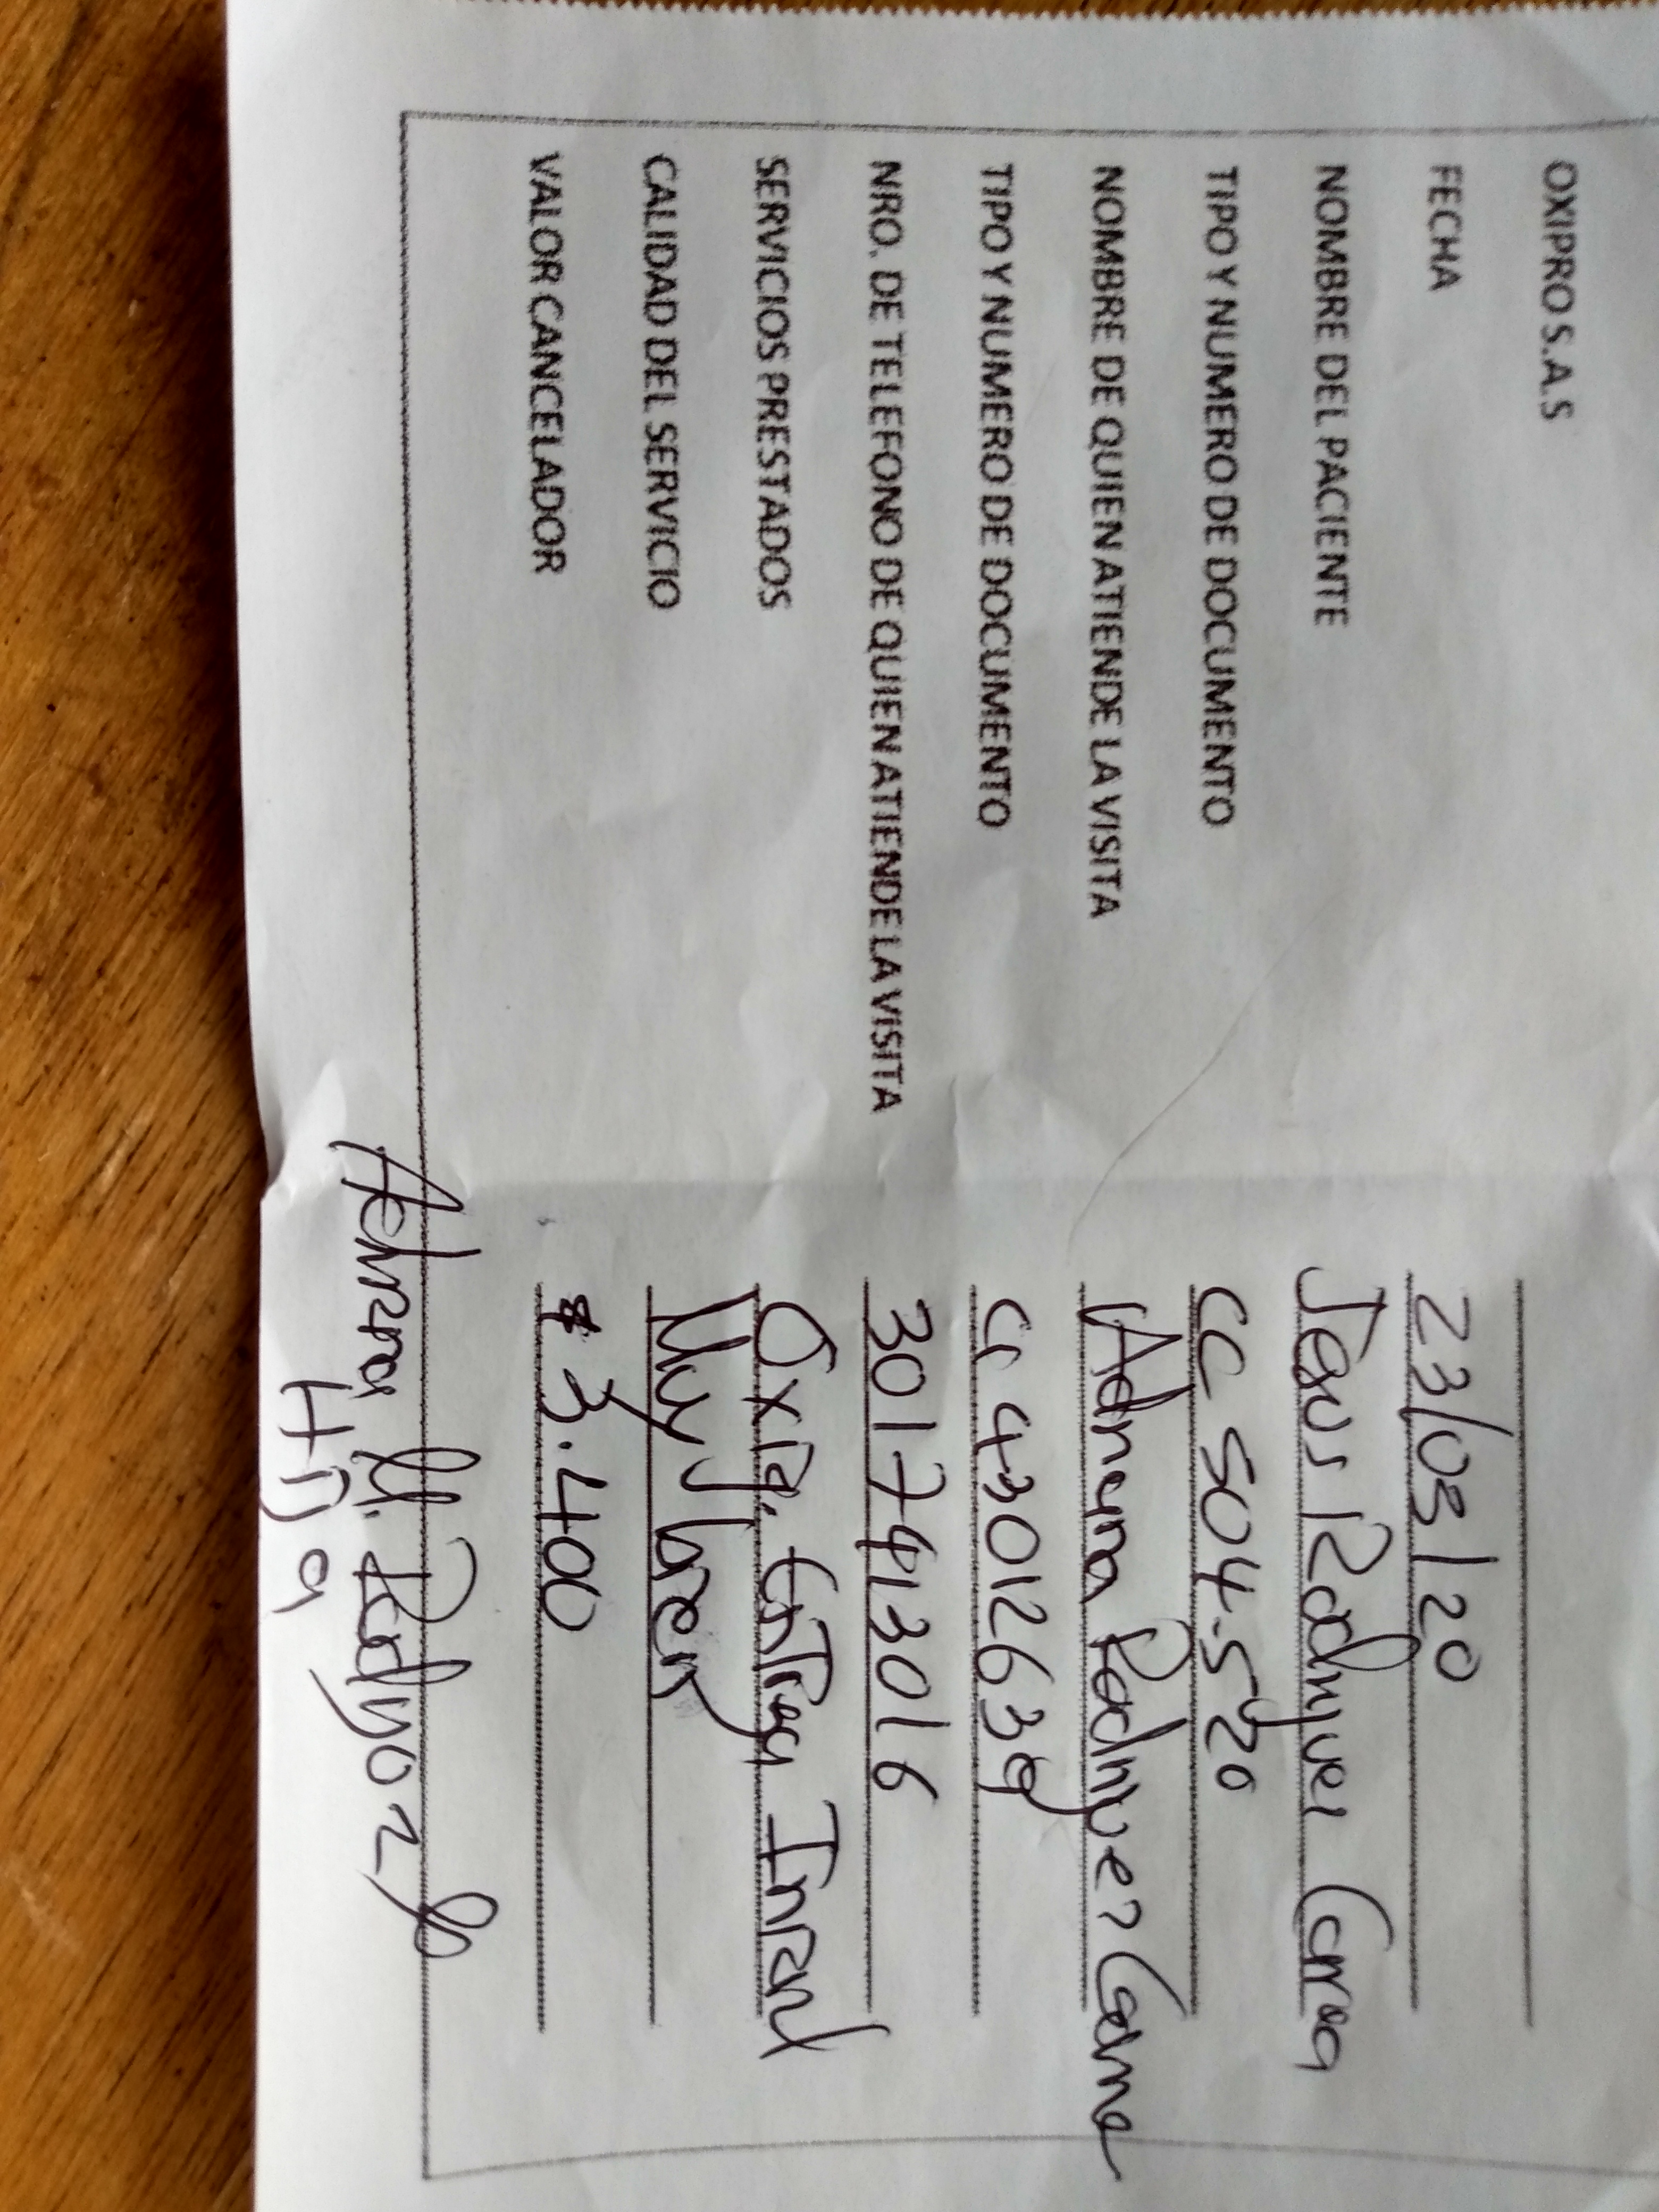 OXIPRO S.A.S
FECHA 23/03/20
NOMBRE DEL PACIENTE Jesus Rodriguez Correa
TIPO Y NUMERO DE DOCUMENTO CC 504.520
NOMBRE DE QUIEN ATIENDE LA VISITA Adriana Rodriguez
TIPO Y NUMERO DE DOCUMENTO CC 43012639
NRO. DE TELEFONO DE QUIEN ATIENDE LA VISITA 3017413016
SERVICIOS PRESTADOS Entrega
CALIDAD DEL SERVICIO Muy bien
VALOR CANCELADOR $ 3.400
Adriana M. Rodriguez
Hija